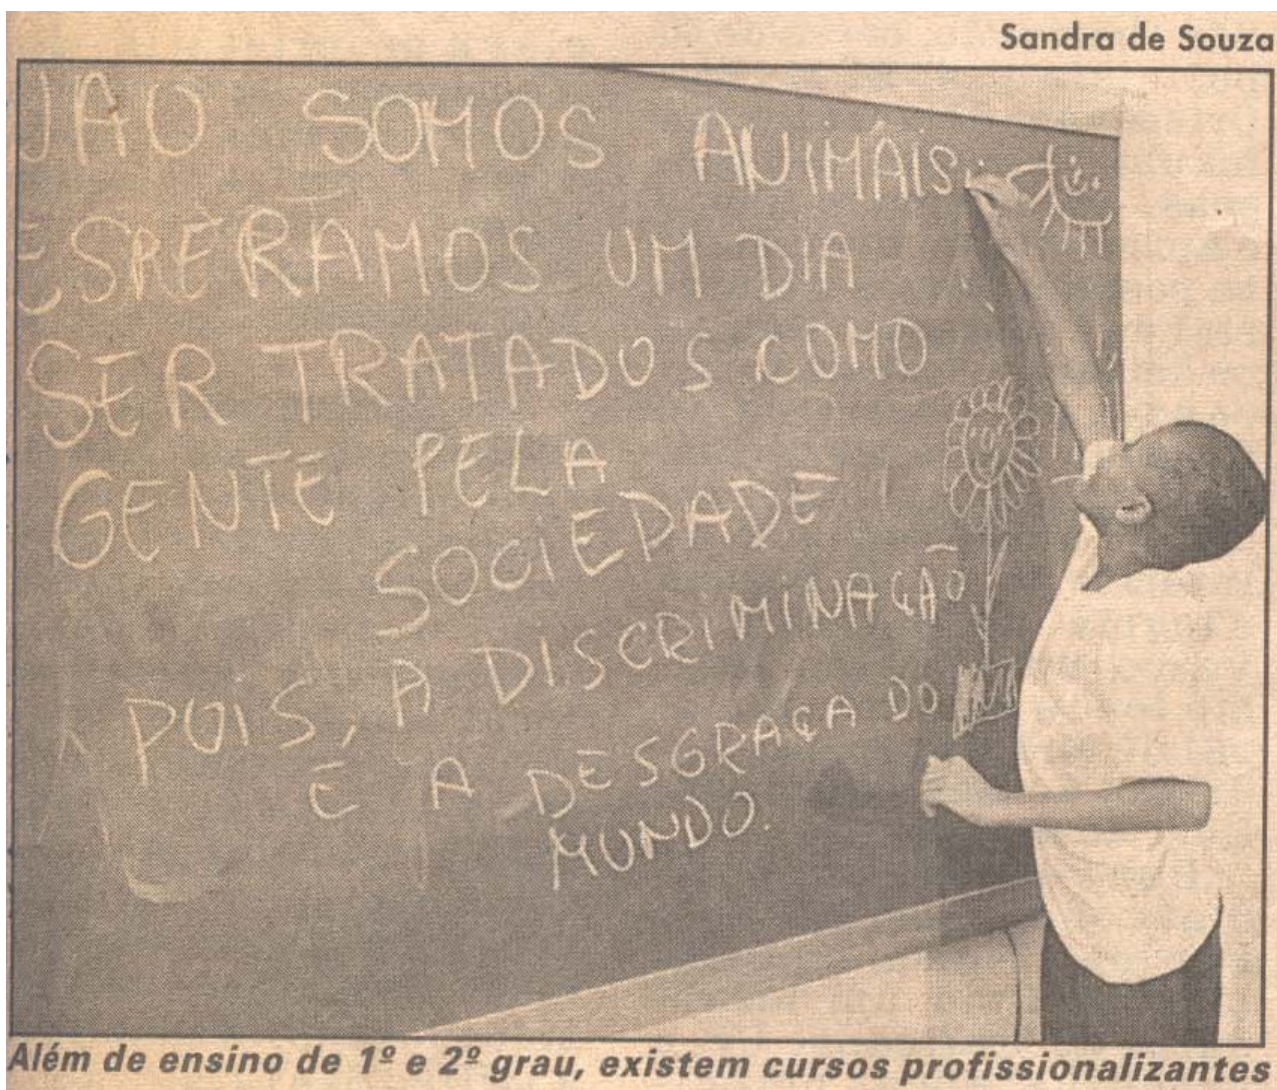 Sandra de Souza
NÃO SOMOS ANIMÁIS
ESPERAMOS UM DIA
SER TRATADOS COMO
GENTE PELA
SOCIEDADE
POIS, A DISCRIMINAÇÃO
E A DESGRAÇA DO
MUNDO.
Além de ensino de 1º e 2º grau, existem cursos profissionalizantes